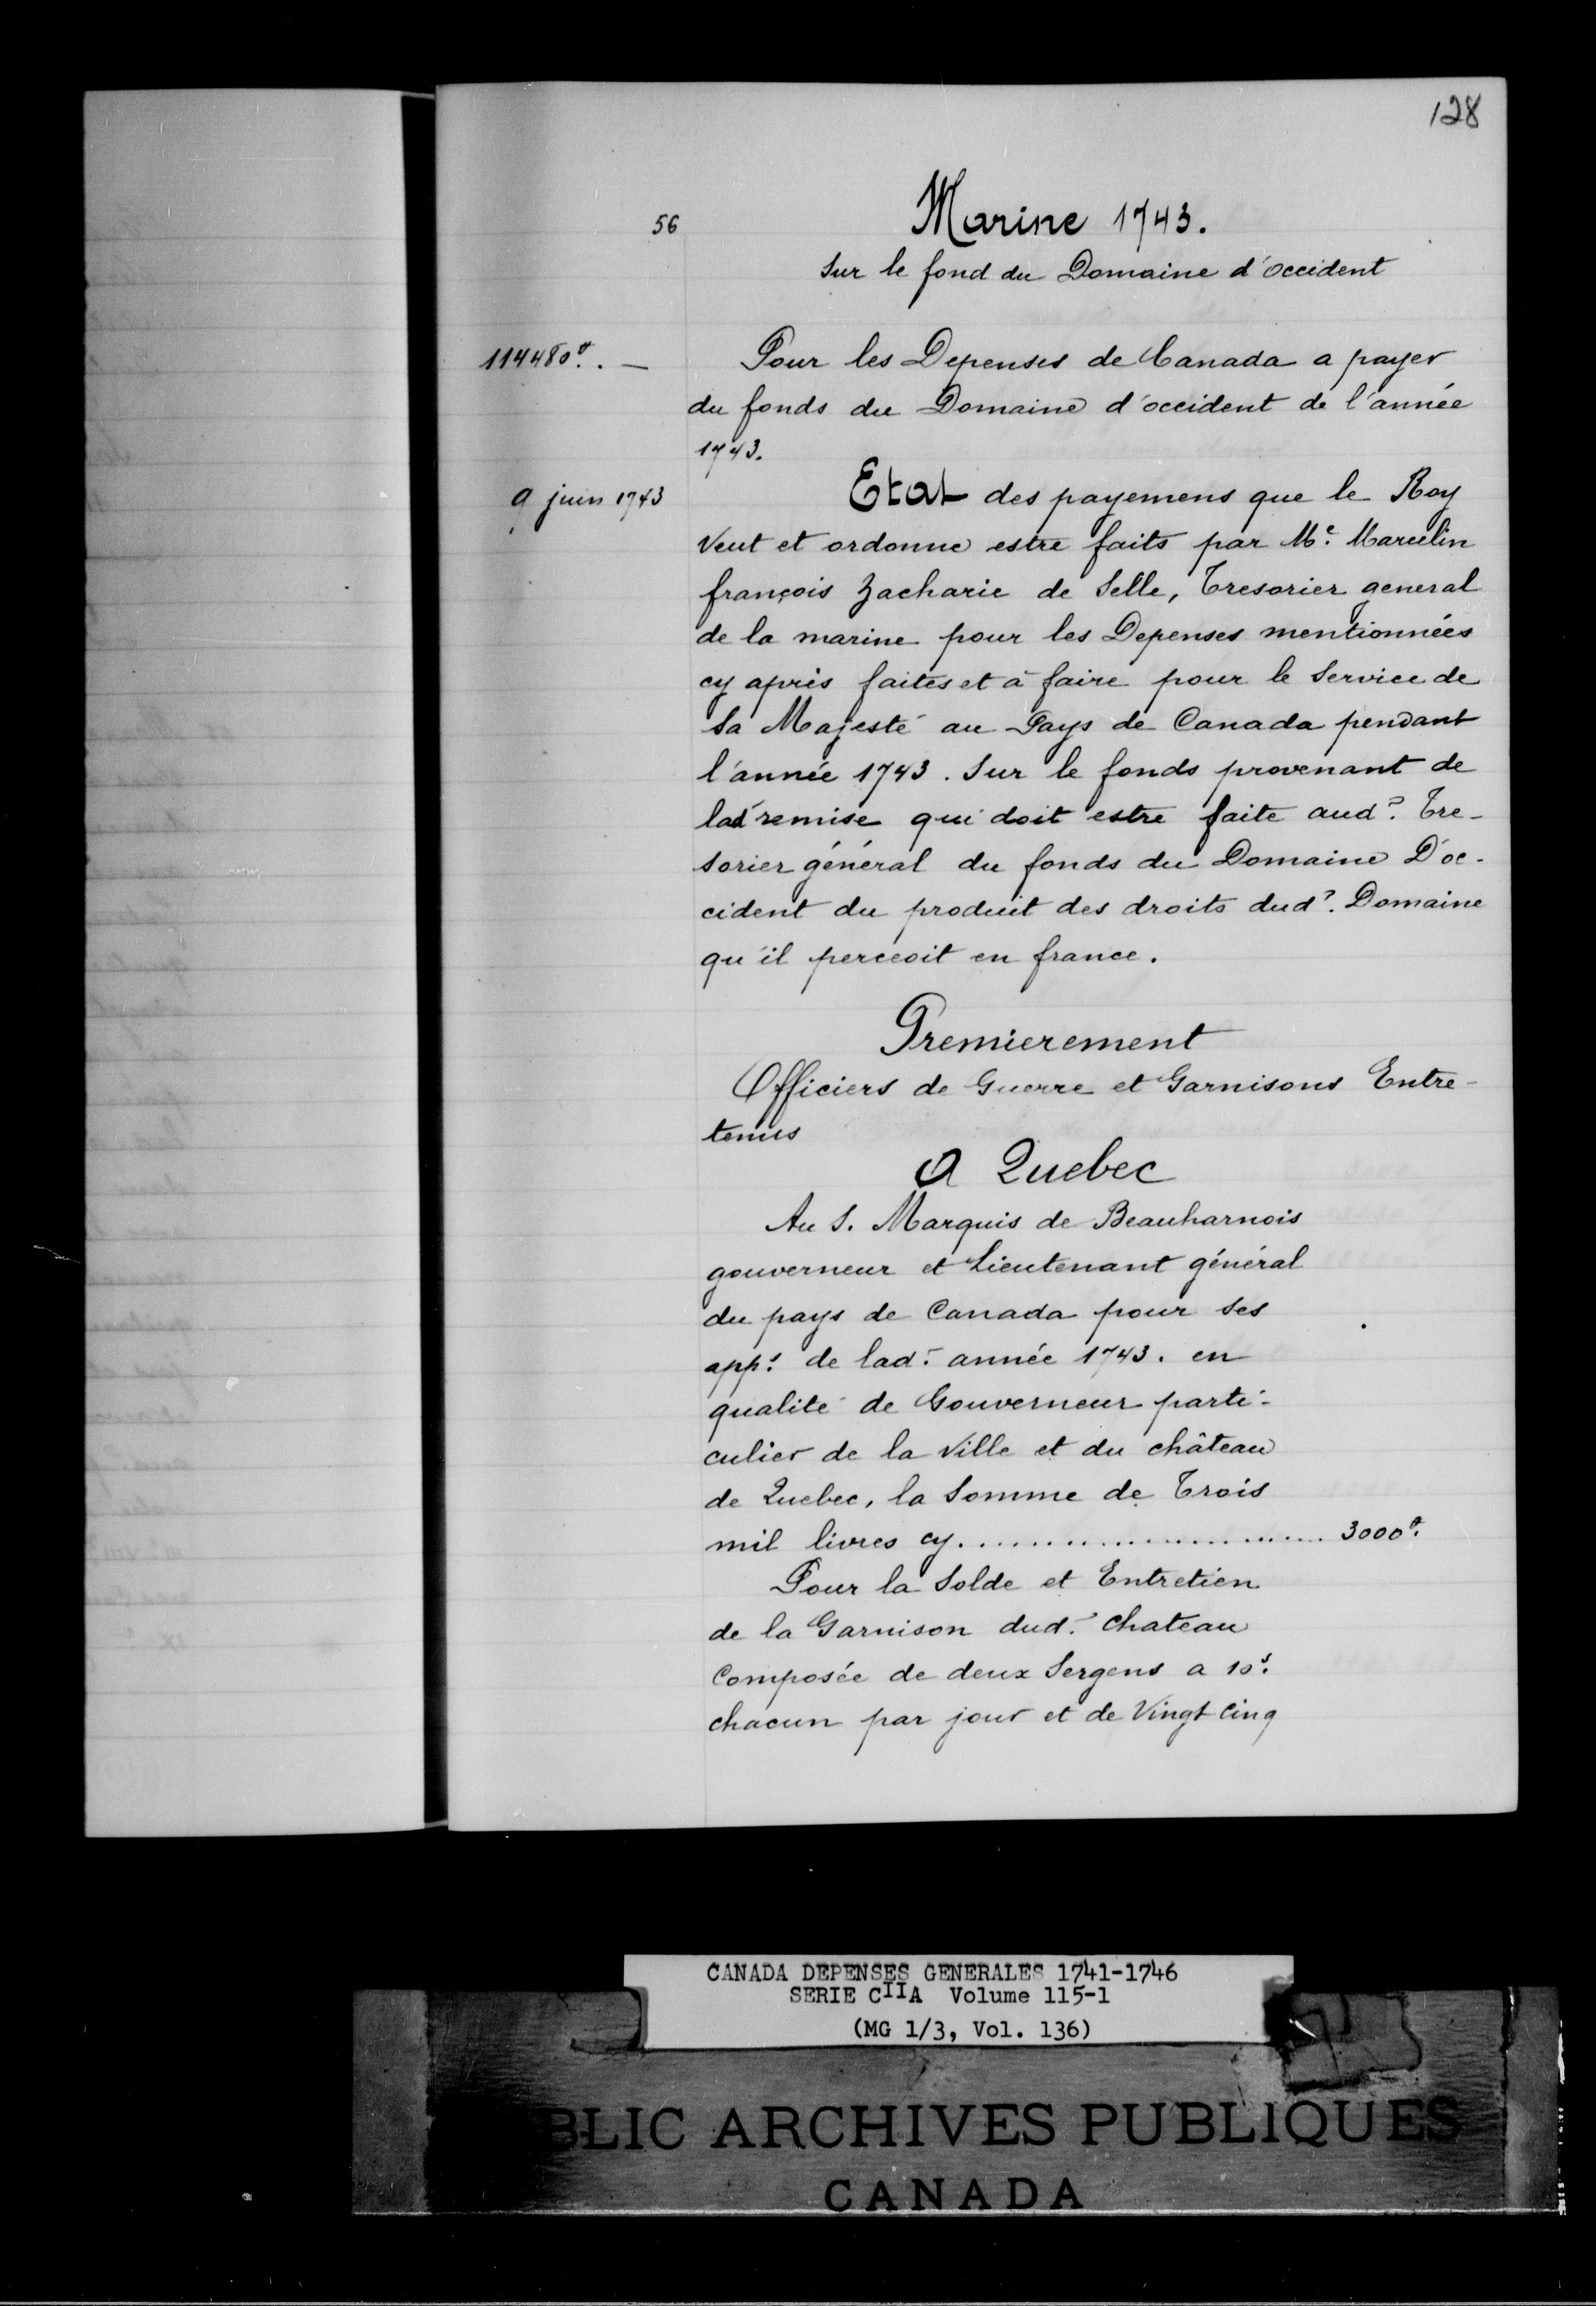 128
56
Marine 1743.
Sur le fond du Domaine d'occident
114480tt. . —
Pour les Depenses de Canada a payer
du fonds du Domaine d'occident de l'année
1743.
9 juin 1743
Etat des payemens que le Roy
Veut et ordonne estre faits par Me. Marcelin
françois Zacharie de Selle, Tresorier general
de la marine pour les Depenses mentionnées
cy après faites et à faire pour le Service de
Sa Majesté au Pays de Canada pendant
l'année 1743. Sur le fonds provenant de
lad remise qui doit estre faite aud. Tre-
sorier général du fonds du Domaine D'oc-
cident du produit des droits dud. Domaine
qu'il perceoit en france.
Premierement
Officiers de Guerre et Garnisons Entre-
tenus
A Quebec
Au S. Marquis de Beauharnois
gouverneur et Lieutenant général
du pays de Canada pour ses
apps. de lad. année 1743. en
qualité de Gouverneur parti-
culier de la Ville et du château
de Quebec, la Somme de Trois
mil livres cy........................ 3000tt.
Pour la Solde et Entretien
de la Garnison dud. Chateau
Composée de deux Sergens a 10s.
chacun par jour et de Vingt Cinq
CANADA DEPENSES GENERALES 1741-1746
SERIE CIIA Volume 115-1
(MG 1/3, Vol. 136)
BLIC ARCHIVES PUBLIQUES
CANADA